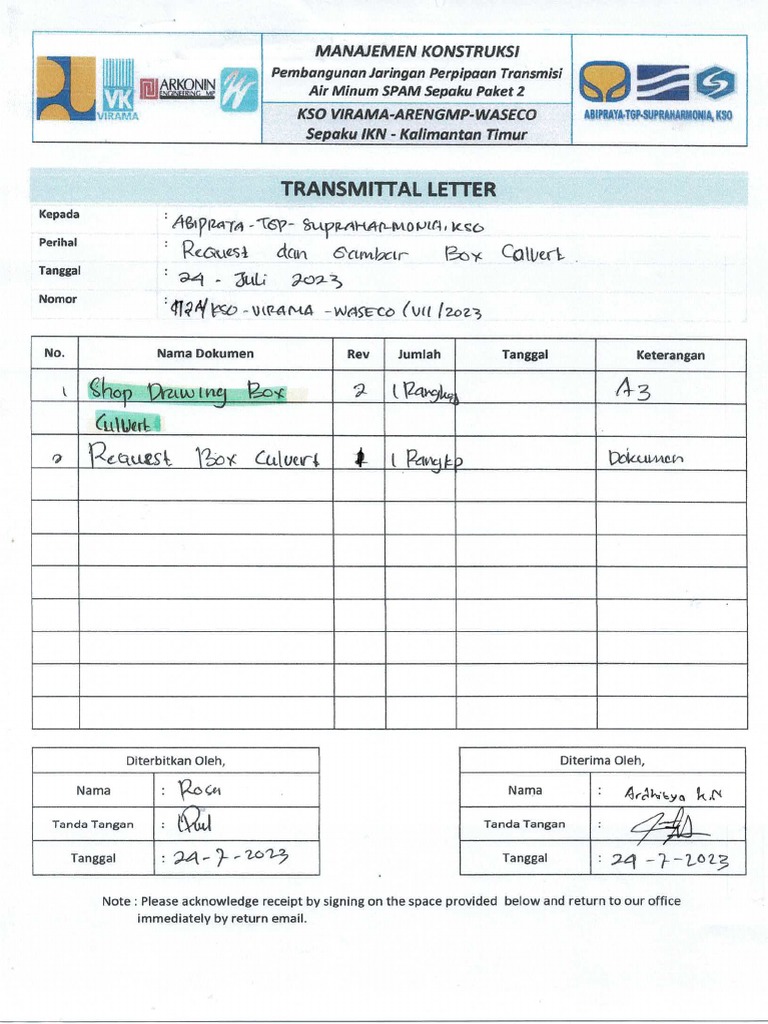 VK
VIRAMA
ARKONIN
ENGINEERING MP
MANAJEMEN KONSTRUKSI
Pembangunan Jaringan Perpipaan Transmisi
Air Minum SPAM Sepaku Paket 2
KSO VIRAMA-ARENGMP-WASECO
Sepaku IKN - Kalimantan Timur
ABIPRAYA-TGP-SUPRAHARMONIA, KSO
TRANSMITTAL LETTER
Kepada : ABIPRAYA - TGP - SUPRAHARMONIA, KSO
Perihal : Request dan Gambar Box Calvert
Tanggal : 24 - Juli 2023
Nomor : /KSO - VIRAMA - WASECO /VII /2023
No. Nama Dokumen Rev Jumlah Tanggal Keterangan
1 Shop Drawing Box 2 1 Rangkap A3
Culvert
2 Request Box Culvert 1 1 Rangkp Dokumen
Diterbitkan Oleh,
Nama : Rosa
Tanda Tangan :
Tanggal : 24-7-2023
Diterima Oleh,
Nama : Ardhitya K.N
Tanda Tangan :
Tanggal : 24-7-2023
Note : Please acknowledge receipt by signing on the space provided below and return to our office
immediately by return email.